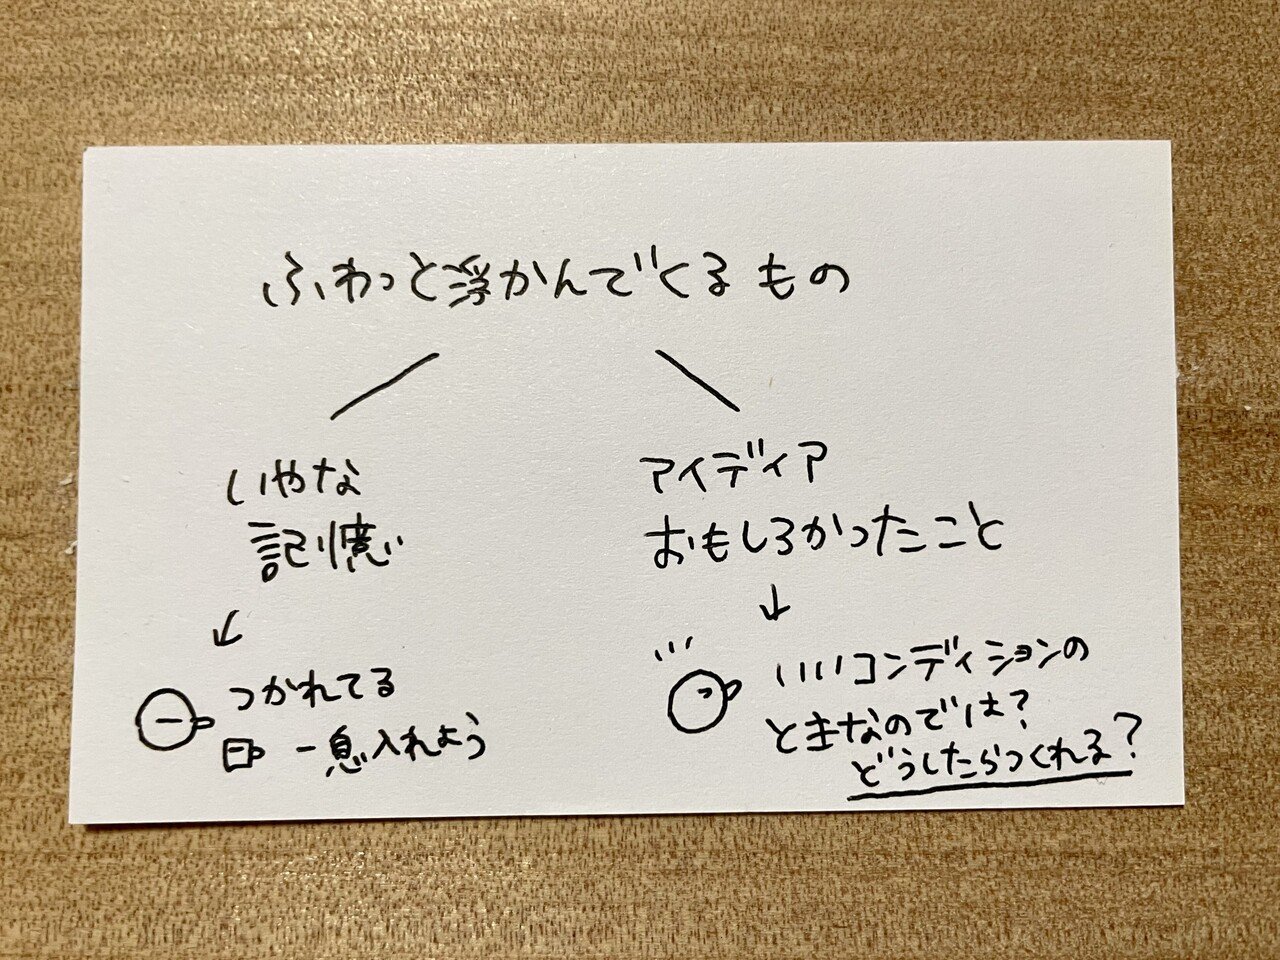 ふわっと浮かんでくるもの
いやな
記憶
つかれてる
一息入れよう
アイディア
おもしろかったこと
いいコンディションの
ときなのでは？
どうしたらつくれる？